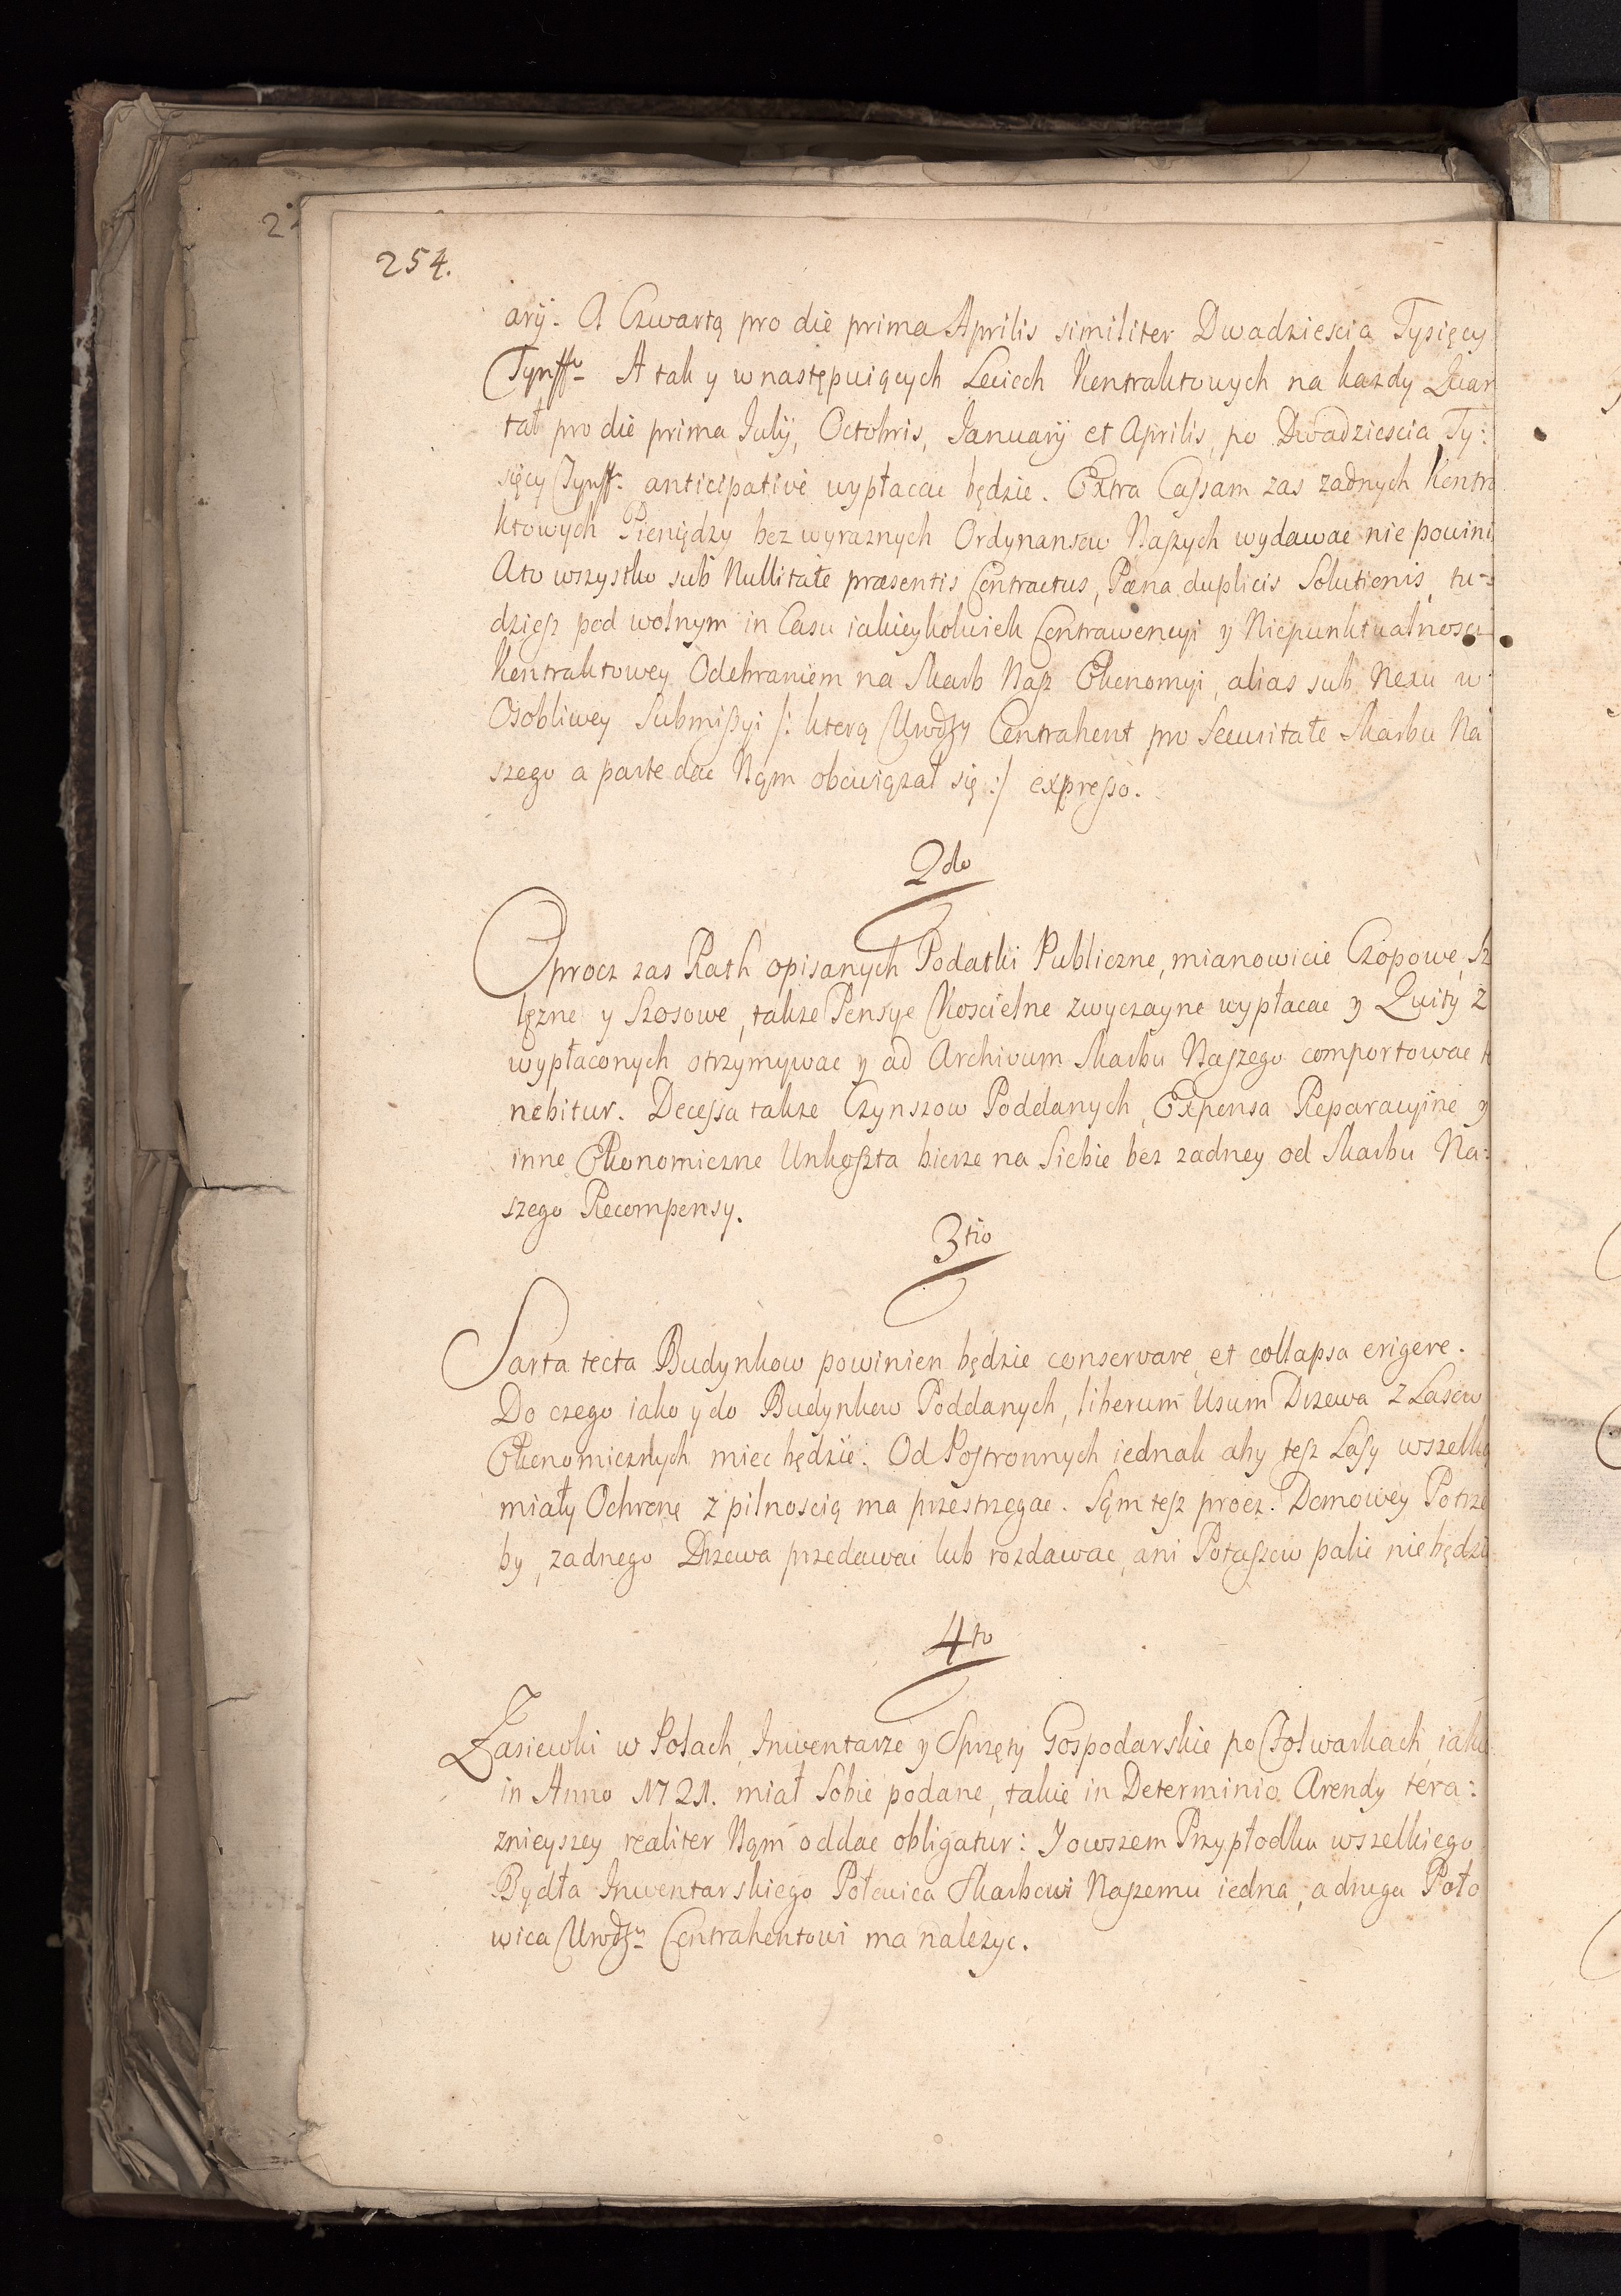 254.
arij. A Czwartą pro die prima Aprilis similiter Dwadziescia Tysięcy
Tynffw A tak y w następuiących Leciech Kontraktowych na kazdy Quar
tał pro die prima Julij, Octobris, Januarij et Aprilis, po Dwadziescia Ty:
sięcy Tynff. anticipative wypłacac będzie. Extra Cassam zas zadnych Kontra
ktowych Pieniędzy bez wyraznych Ordynansow Naszych wydawac nie powini
A to wszystko sub Nullitate præsentis Contractus, Pæna duplicis Solutionis, tu-
dziesz pod wolnym in Casu iakieykolwiek Contrawencyi y Niepunktualnosci
Kontraktowey Odebraniem na Skarb Nasz Ekonomyi, alias sub Nexu w
Osobliwey Submissyi /: ktorą Urodzy Contrahent pro Securitate Skarbu Na
szego a parte dac Nam obowiązał się :/ expresso.
2do
Oprocz zas Rath opisanych Podatki Publiczne, mianowicie Czopowe, Sz
lęzne y Szosowe, takze Pensye Koscielne zwyczayne wypłacac y Quity z
wypłaconych otrzymywac y ad Archivum Skarbu Naszego comportowac te
nebitur. Decessa takze Czynszow Poddanych, Expensa Reparacyine y
inne Ekonomiczne Unkoszta bierze na Siebie bez zadney od Skarbu Na:
szego Recompensy.
3tio
Sarta tecta Budynkow powinien będzie conservare et collapsa erigere.
Do czego iako y do Budynkow Poddanych, liberum Usum Drzewa z Lasow
Ekonomicznych miec będzie. Od Postronnych iednak aby tesz Lasy wszelką
miały Ochronę z pilnoscią ma przestrzegac. Sąm tesz procz Domowey Potrze
by, zadnego Drzewa przedawac lub rozdawac, ani Potaszow palic nie będzie
4to
Zasiewki w Polach, Inwentarze y Sprzęty Gospodarskie po Folwarkach, iakie
in Anno 1721. miał Sobie podane, takie in Determinio Arendy tera:
znieyszey realiter Nąm oddac obligatur: Y owszem Przypłodku wszelkiego
Bydła Inwentarskiego Połowica Skarbowi Naszemu iedna, a druga Poło
wica Urodzu Contrahentowi ma nalezyc.